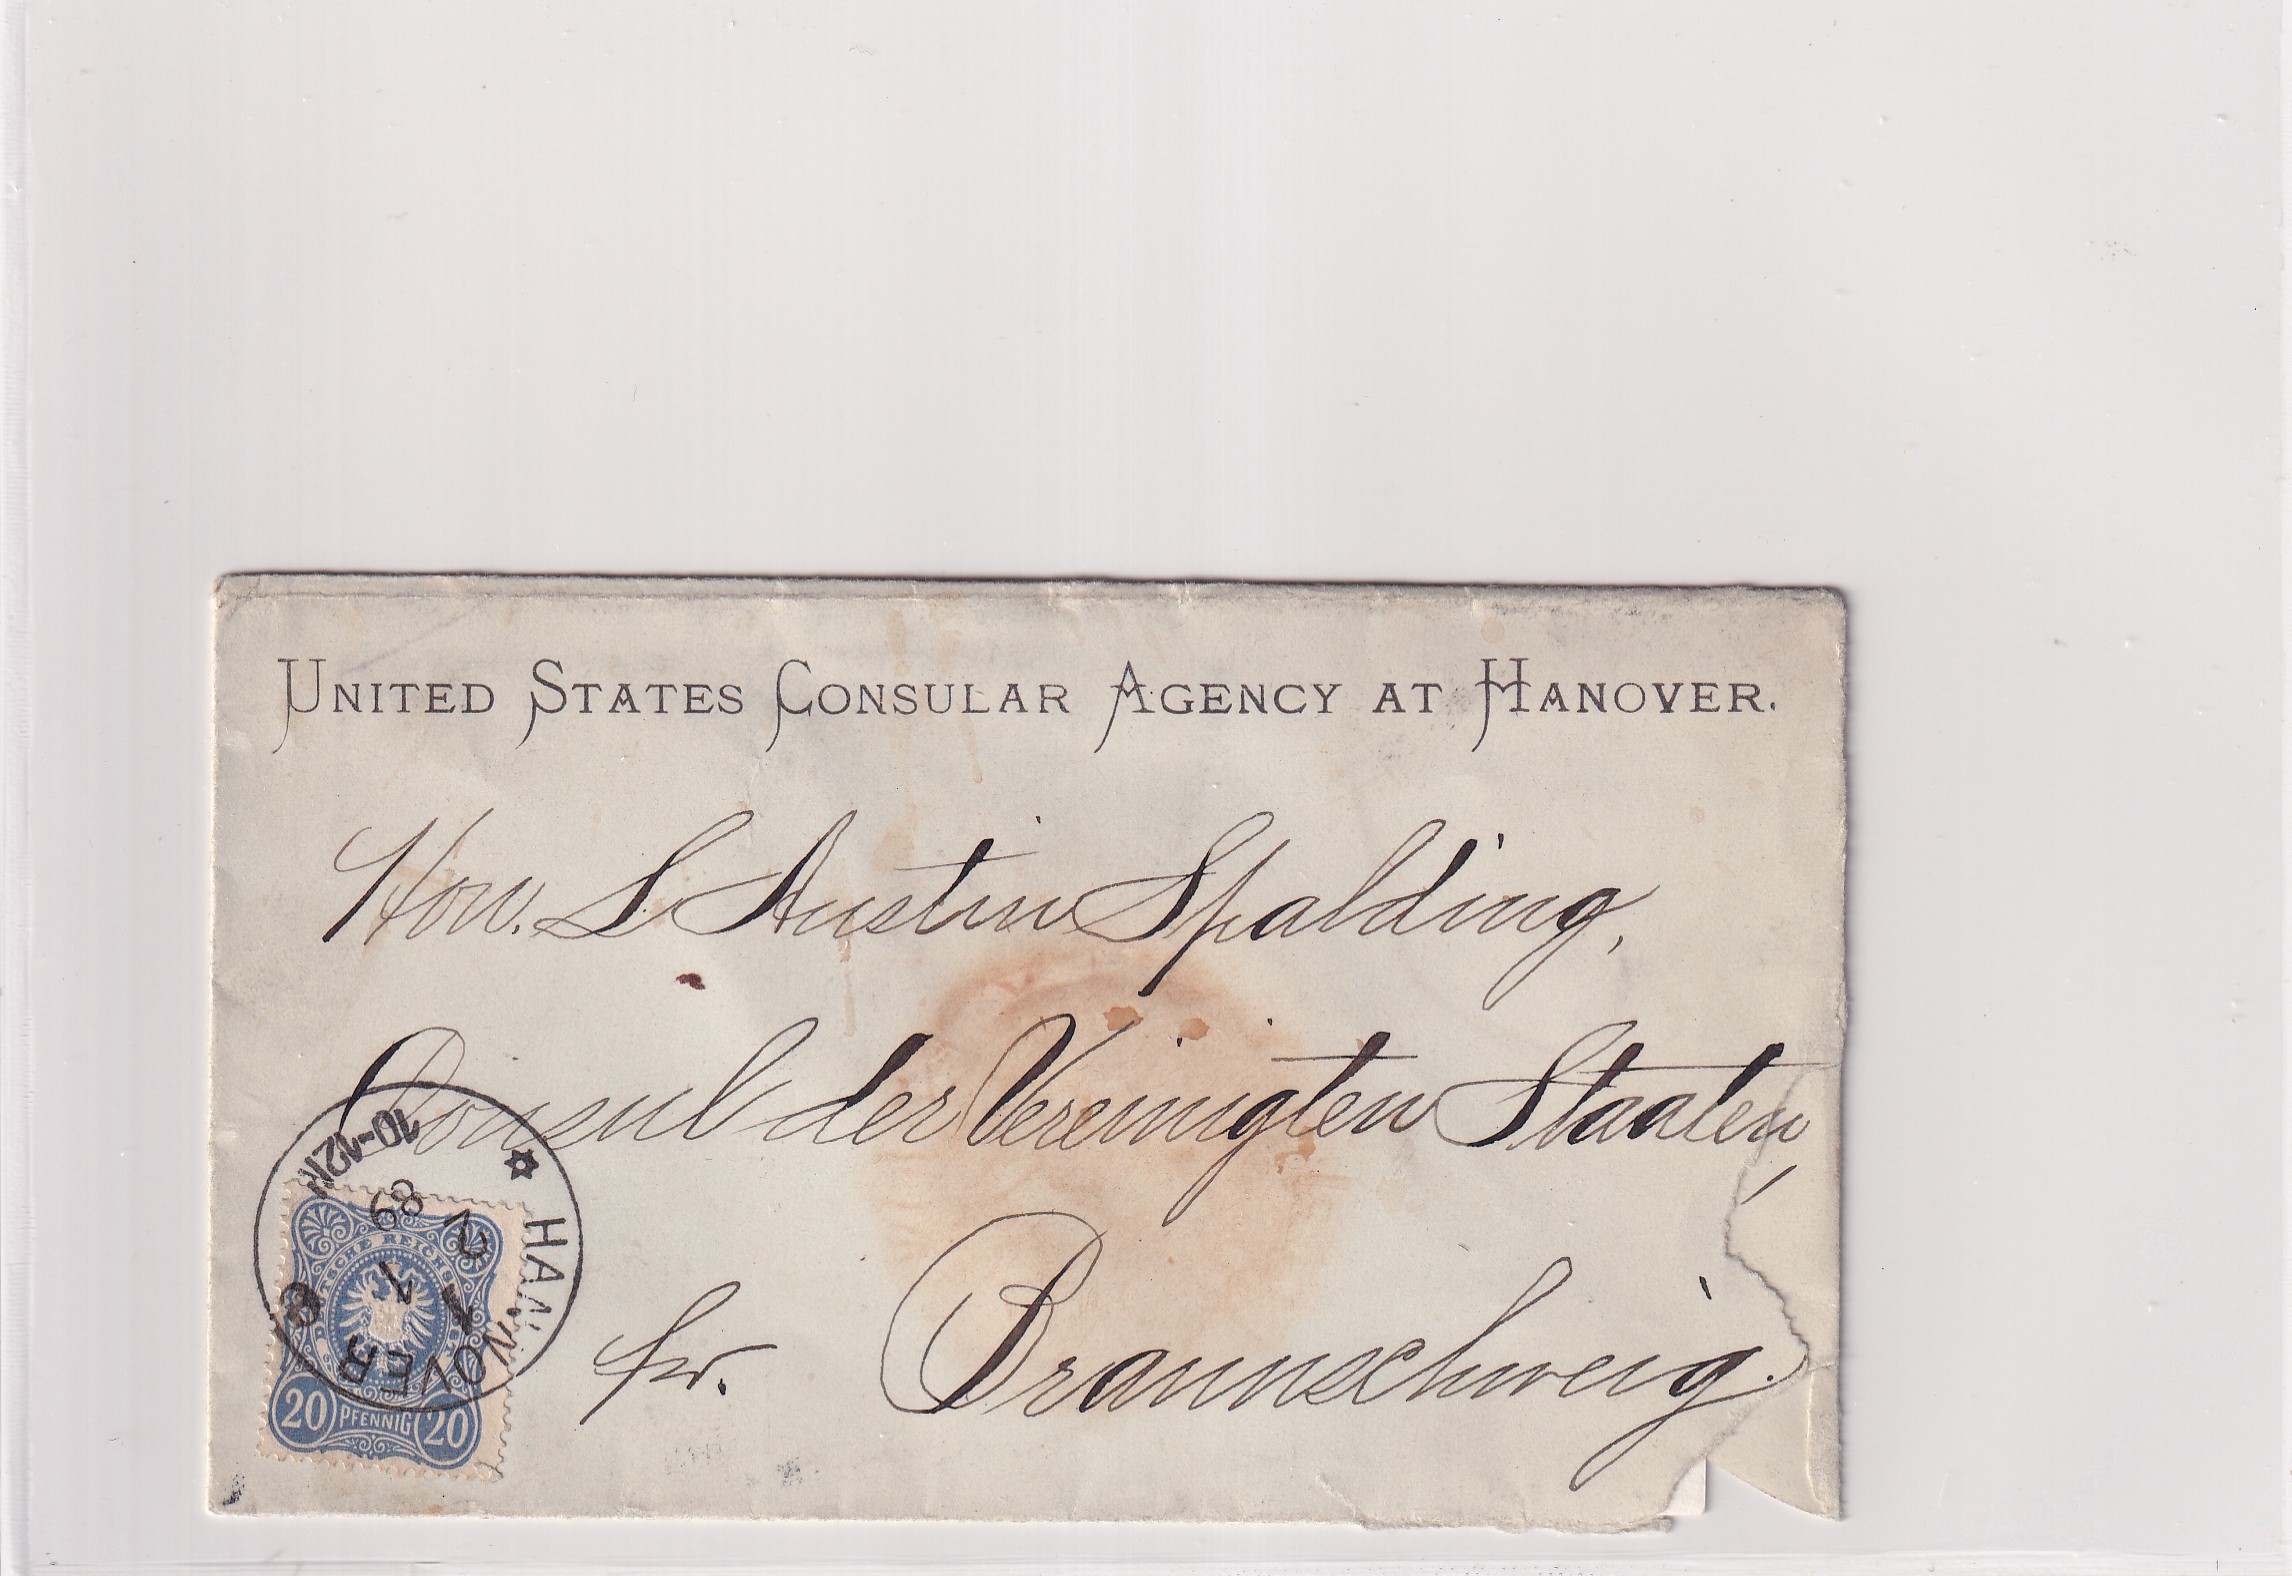 UNITED STATES CONSULAR AGENCY AT HANOVER.
Hon. L Austin Spalding,
Consul der Vereinigten Staaten,
fr. Braunschweig.
HANNOVER 1
10-12N
89
DEUTSCHE REICHSPOST
20 PFENNIG 20